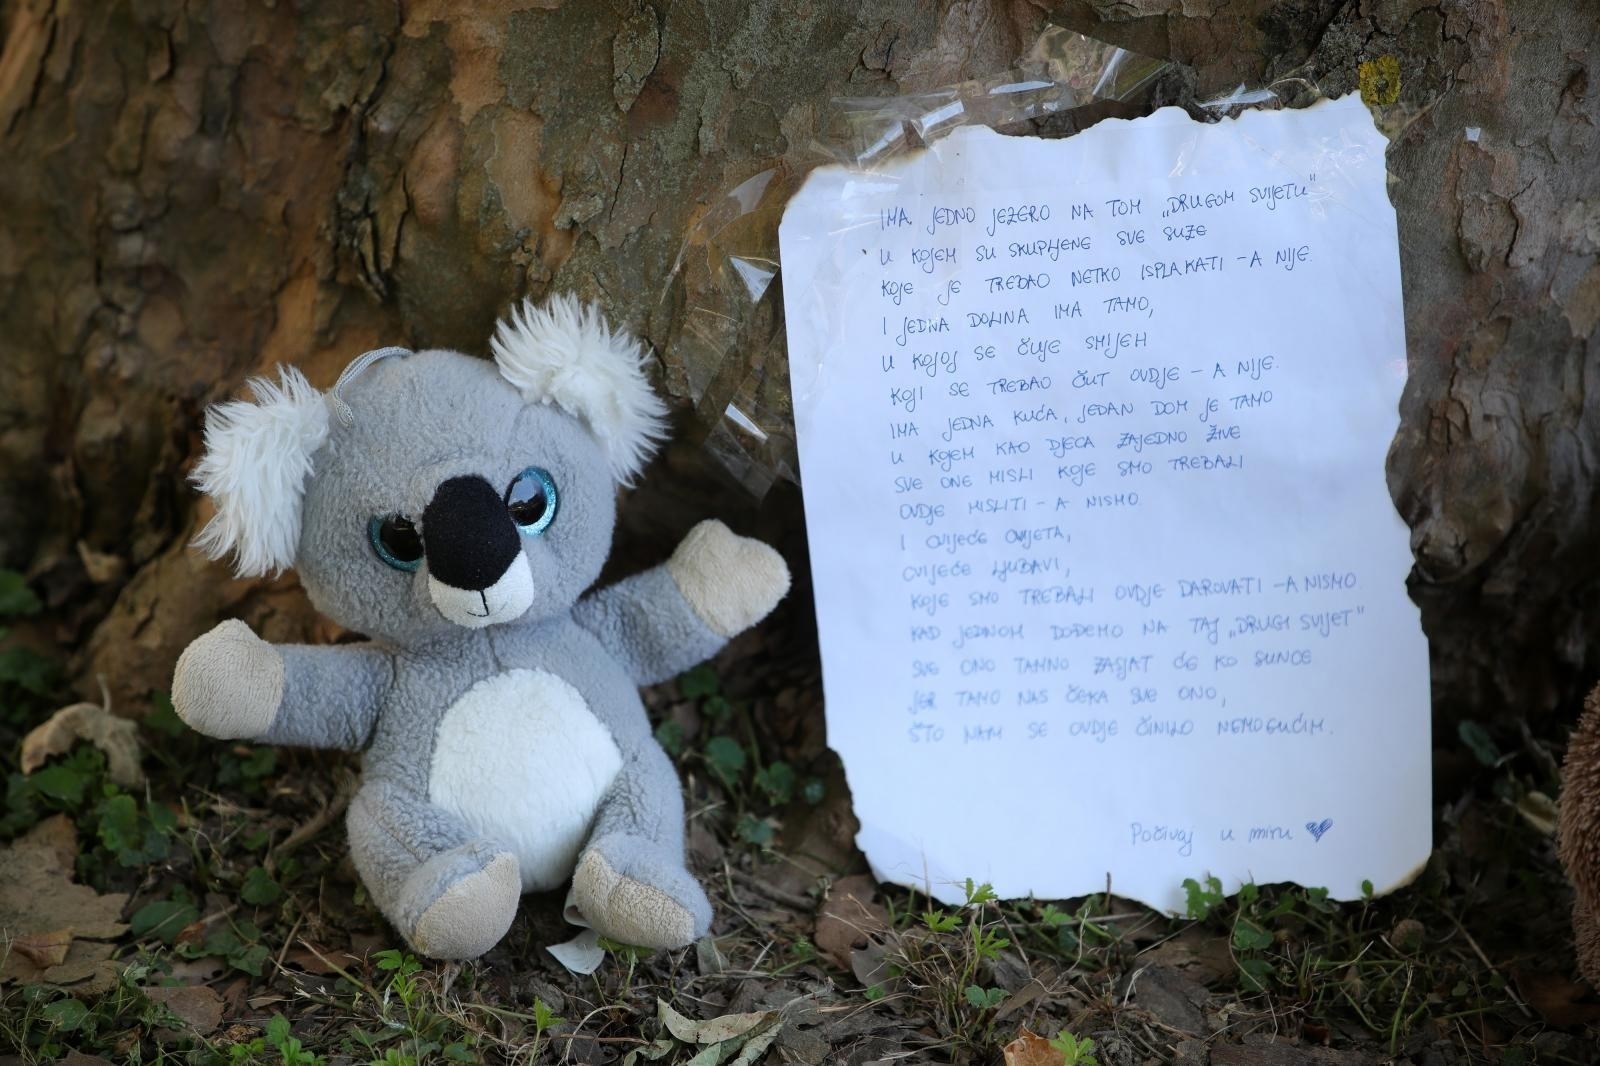 IMA JEDNO JEZERO NA TOM „DRUGOM SVIJETU"
U KOJEM SU SKUPLJENE SVE SUZE
KOJE JE TREBAO NETKO ISPLAKATI - A NIJE.
I JEDNA DOLINA IMA TAMO,
U KOJOJ SE ČUJE SMIJEH
KOJI SE TREBAO ČUT OVDJE - A NIJE.
IMA JEDNA KUĆA, JEDAN DOM JE TAMO
U KOJEM KAO DJECA ZAJEDNO ŽIVE
SVE ONE MISLI KOJE SMO TREBALI
OVDJE MISLITI - A NISMO.
I CVIJEĆE CVJETA,
CVIJEĆE LJUBAVI,
KOJE SMO TREBALI OVDJE DAROVATI - A NISMO.
KAD JEDNOM DOĐEMO NA TAJ „DRUGI SVIJET"
SVE ONO TAMNO ZASJAT ĆE KO SUNCE
JER TAMO NAS ČEKA SVE ONO,
ŠTO NAM SE OVDJE ČINILO NEMOGUĆIM.
Počivaj u miru